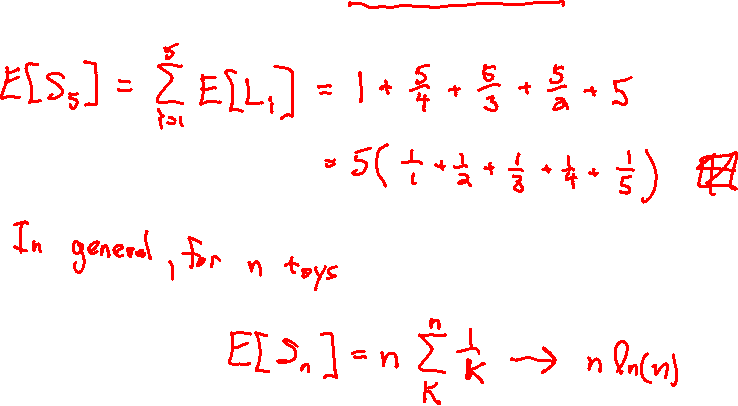 E[S_5] = \sum_{i=1}^{5} E[L_i] = 1 + \frac{5}{4} + \frac{5}{3} + \frac{5}{2} + 5
= 5(\frac{1}{1} + \frac{1}{2} + \frac{1}{3} + \frac{1}{4} + \frac{1}{5})
In general, for n toys
E[S_n] = n \sum_{K}^{n} \frac{1}{K} → n ln(n)